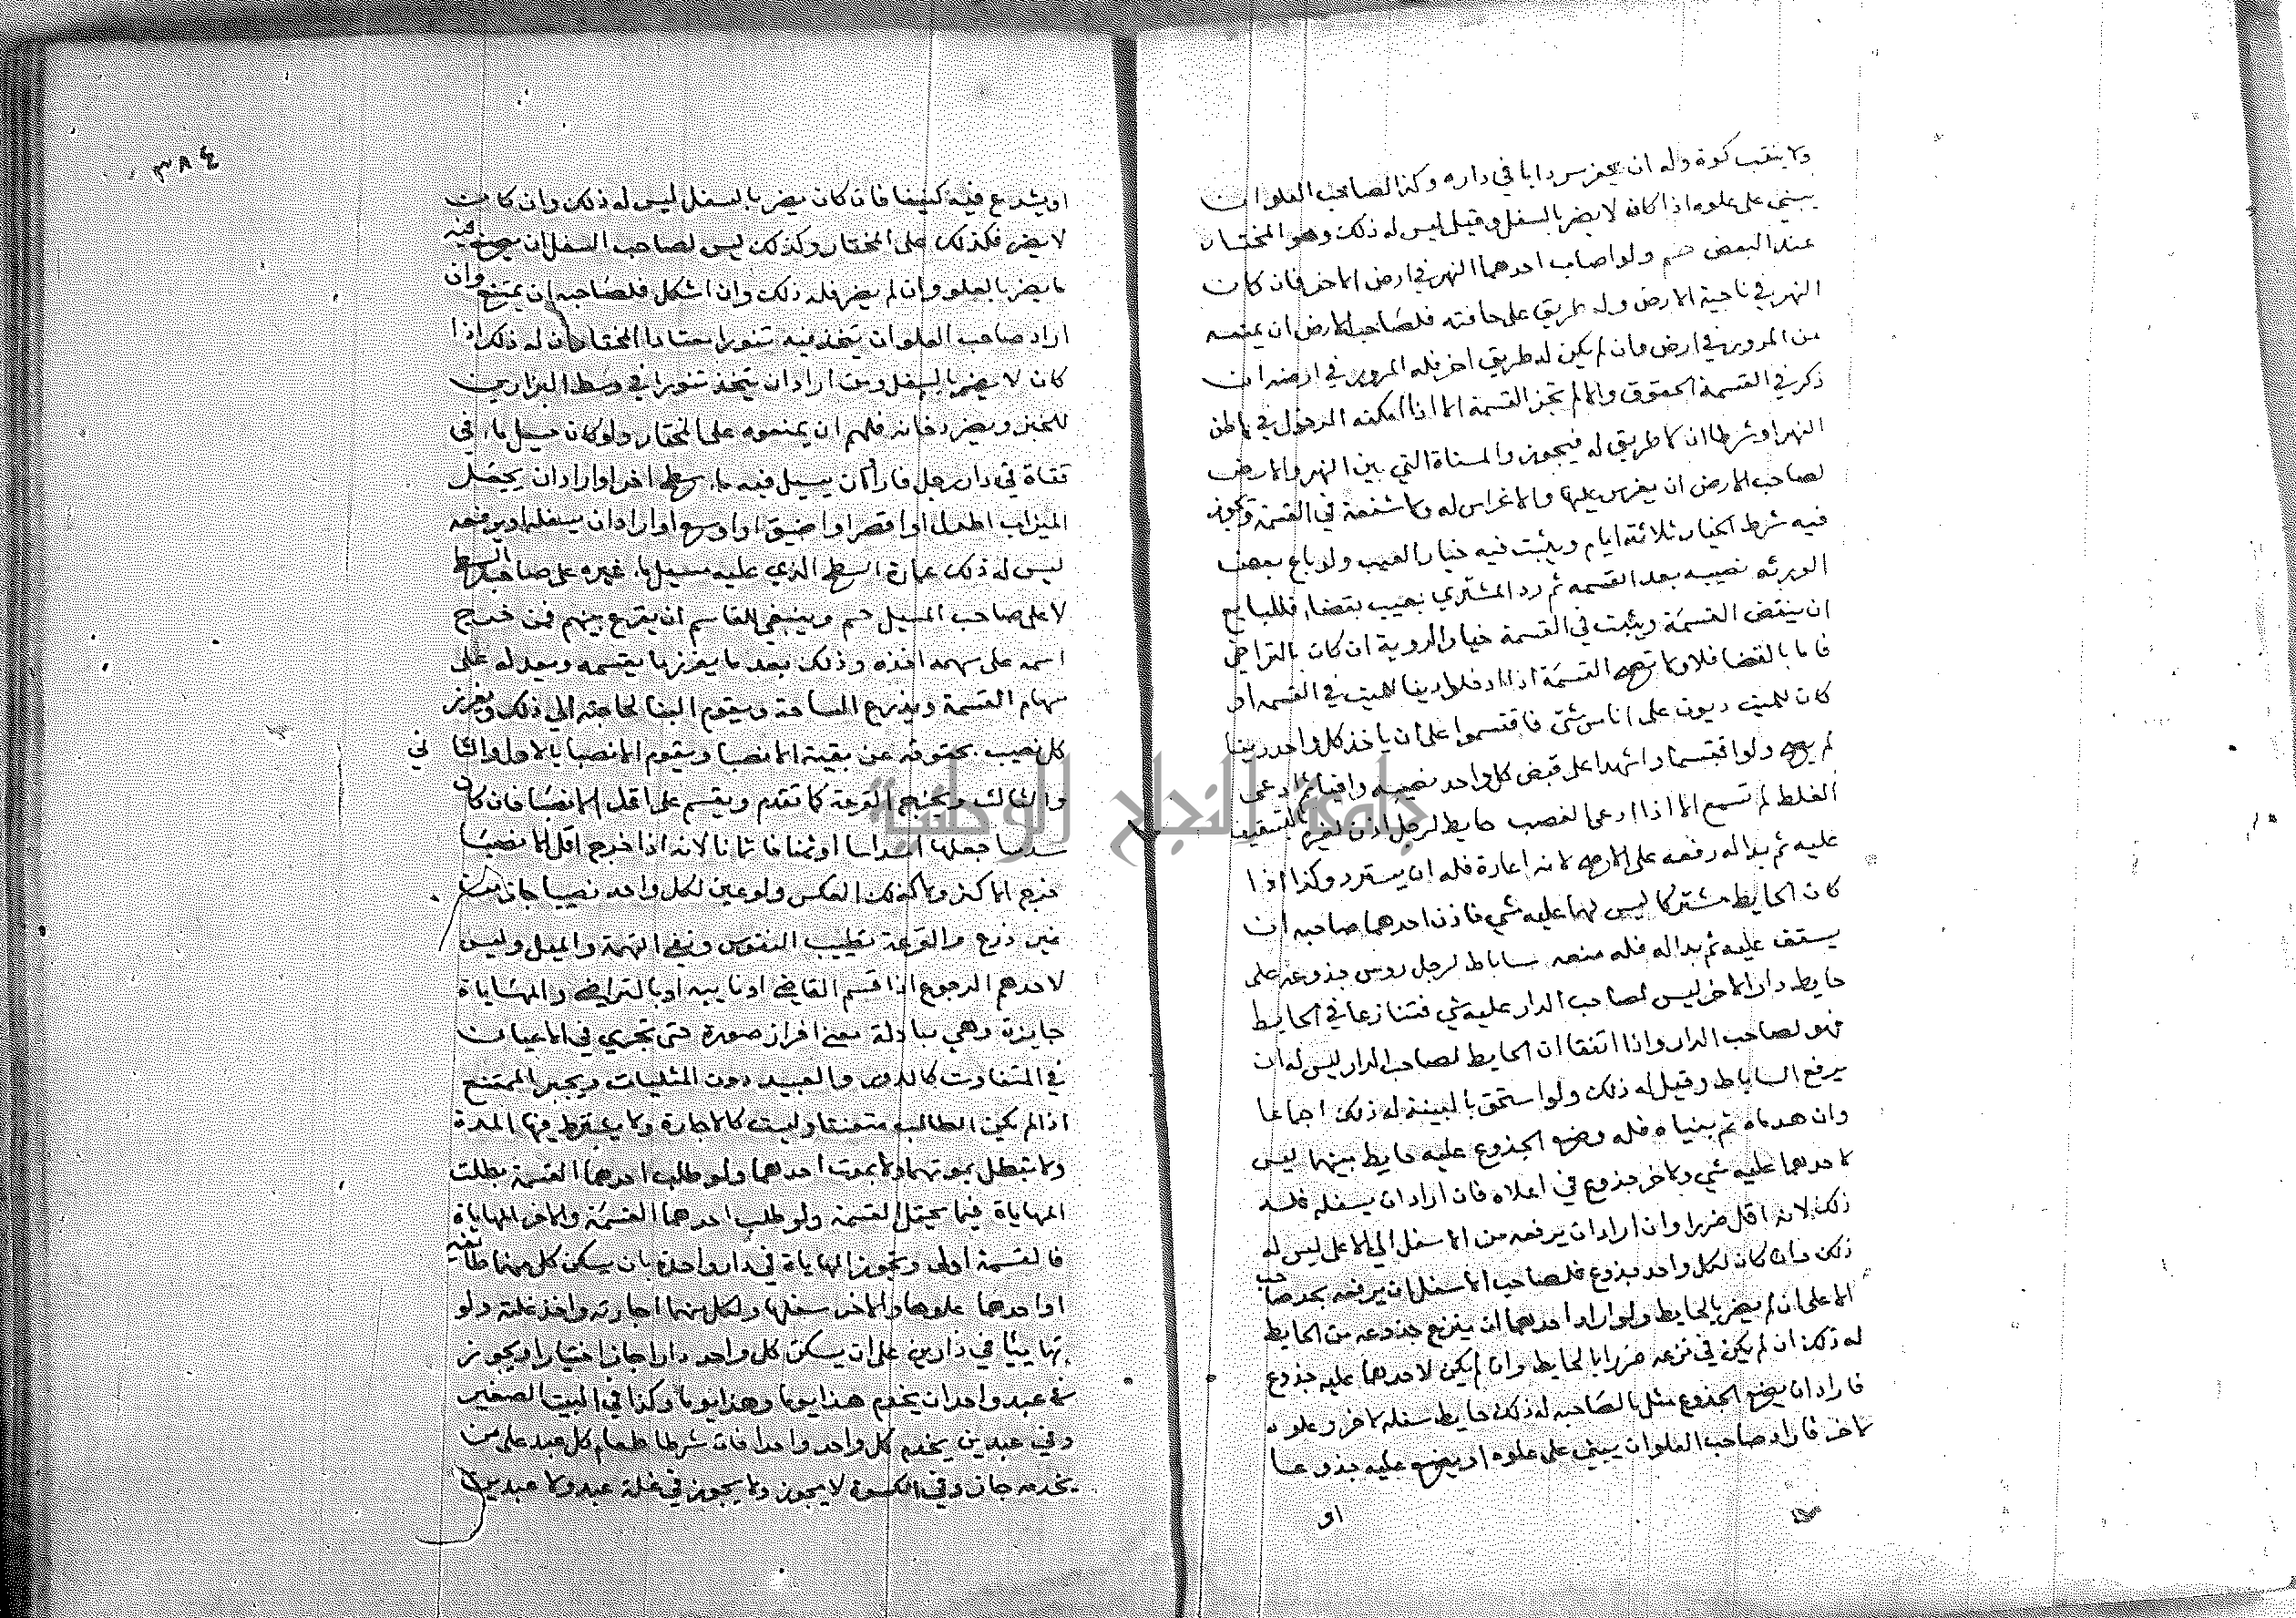 ولا ينقب كوة وله ان يحفر سردابا في داره وكذا لصاحب العلو ان
يبني على علوه اذا كان لا يضر بالسفل وقيل ليس له ذلك وهو المختار
عند البعض ولو اصاب احدهما النهر في ارض الاخر فان كان
النهر في ناحية الارض وله طريق على حافته فلصاحب الارض ان يمنعه
من المرور في ارض وان لم يكن له طريق اخر فله المرور في ارضه ان
ذكر في القسمة الحقوق والا لم تجز القسمة الا اذا امكنه الدخول في باطن
النهر او شرطا ان لا طريق له فيجوز والمسناة التي بين النهر والارض
لصاحب الارض ان يغرس عليها والاغراس له ولا شفعة في القسمة وتجوز
فيه شرط الخيار ثلاثة ايام ويثبت فيه خيار العيب ولو باع بعض
الورثه نصيبه بعد القسمه ثم رد المشتري بعيب بقضاء فللبايع
ان ينقض القسمة ويثبت في القسمة خيار الروية ان كان بالتراضي
فاما بالقضا فلا ولا تصح القسمة اذا ادخلوا دينا للميت في القسمه او
كان للميت ديون على اناس شتى فاقتسموا على ان ياخذ كل واحد دينا
لم يصح ولو اقتسما واشهدا على قبض كل واحد نصيبه وافيا ثم ادعى
الغلط لم تسمع الا اذا ادعى الغصب حايط لرجل اذن لغيره بالتسقيف
عليه ثم بدا له رفعه على الاصح لانه اعارة فله ان يسترد وكذا اذا
كان الحايط مشتركا ليس لهما عليه شي فاذن احدهما صاحبه ان
يسقف عليه ثم بدا له فله منعه ساباط لرجل روس جذوعه على
حايط دار الاخر ليس لصاحب الدار عليه شي فتنازعا في الحايط
فهو لصاحب الدار واذا اتفقا ان الحايط لصاحب الدار ليس له ان
يرفع الساباط وقيل له ذلك ولو استحق بالبينة له ذلك اجماعا
وان هدماه ثم بنياه فله وضع الجذوع عليه حايط بينهما ليس
لاحدهما عليه شي ولاخر جذوع في اعلاه فان اراد ان يسفله فله
ذلك لانه اقل ضررا وان اراد ان يرفعه من الاسفل الي الاعلى ليس له
ذلك وان كان لكل واحد جذوع فلصاحب الاسفل ان يرفعه بحد صاحب
الاعلى ان لم يضر بالحايط ولو اراد احدهما ان ينزع جذوعه من الحايط
له ذلك ان لم يكن في نزعه ضررا بالحايط وان لم يكن لاحدهما عليه جذوع
فاراد ان يضع الجذوع مثل لصاحبه له ذلك حايط سفله لاخر وعلوه
لاخر فاراد صاحب العلو ان يبني على علوه او يضع عليه جذوعا
او
٣٨٤
او يشرع فيه كنيفا فان كان يضر بالسفل ليس له ذلك وان كان
لا يضر فكذلك على المختار وكذلك ليس لصاحب السفل ان يصنع فيه
ما يضر بالعلو وان لم يضر فله ذلك وان اشكل فلصاحبه ان يمتنع وان
اراد صاحب العلو ان يتخذ فيه تنورا معتادا المختار ان له ذلك اذا
كان لا يضر بالسفل ومن اراد ان يتخذ تنورا في وسط البزازين
للخبز ويضر دخانه فلهم ان يمنعوه على المختار ولو كان مسيل ماء في
قناة في دار رجل فاراد ان يسيل فيه ماء سطح اخر او اراد ان يجعل
الميزاب اطول او اقصر او اضيق او اوسع او اراد ان يسفله او يرفعه
ليس له ذلك عمارة السطح الذي عليه مسيل ماء غيره على صاحب السطح
لا على صاحب المسيل وينبغي للقاسم ان يقرع بينهم فمن خرج
اسمه على سهمه اخذه وذلك بعد ما يفرز ما يقسمه ويعدله على
سهام القسمة ويذرع المساحة ويقوم البنا لحاجته الي ذلك ويفرز
كل نصيب بحقوقه عن بقية الانصبا ويقوم الانصبا بالاول والثاني
والثالث وتخرج القرعة كما تقدم ويقسم على اقل الانصبا فان كان
سدسا جعلها اسداسا او ثمنا فاثمانا لانه اذا خرج اقل الانصبا
خرج الاكثر ولا كذلك العكس ولو عين لكل واحد نصيبا جاز من
غير ذرع والقرعة تطييب النفوس ونفي التهمة والميل وليس
لاحدهم الرجوع اذا قسم القاضي او نايبه او بالتراضي والمهاياة
جايزة وهي مبادلة معنى افراز صورة حتى تجري في الاعيان
في المتفاوت كالدور والعبيد دون المثليات ويجبر الممتنع
اذا لم يكن الطالب متعنتا وليست كالاجارة ولا يشترط فيها المدة
ولا تبطل بموتهما ولا بموت احدهما ولو طلب احدهما القسمة بطلت
المهاياة فيما يحتمل القسمة ولو طلب احدهما القسمة والاخر المهاياة
فالقسمة اولى وتجوز المهاياة في دار واحدة بان يسكن كل منهما طائفه
او احدهما علوها والاخر سفلها ولكل منهما اجارته واخذ غلته ولو
تهايئا في دارين على ان يسكن كل واحد دارا جاز اختيارا ويجوز
في عبد واحد ان يخدم هذا يوما وهذا يوما وكذا في البيت الصغير
وفي عبدين يخدم كل واحد واحدا فان شرطا طعام كل عبد على من
يخدمه جاز وفي الكسوة لا يجوز ولا يجوز في غلة عبد ولا عبدين
جامعة النجاح الوطنية